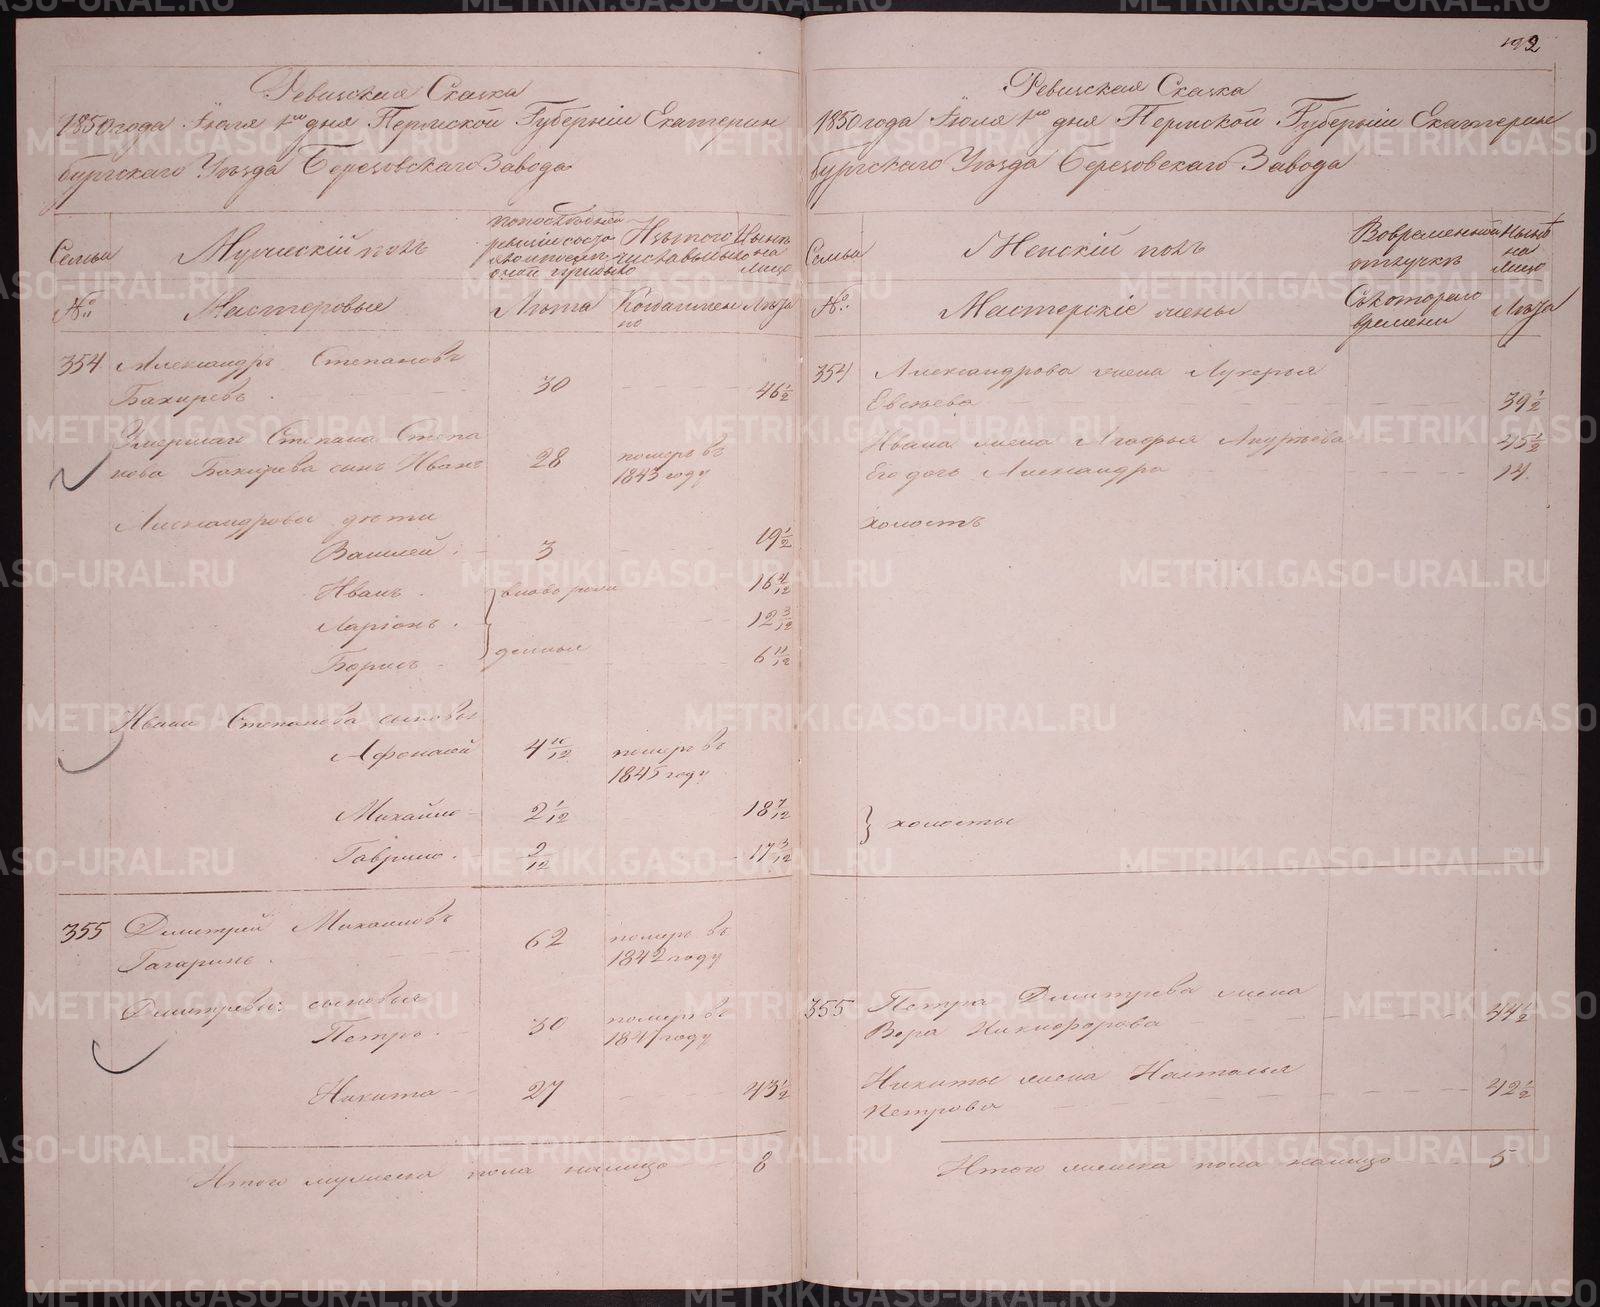 192
Ревизская Сказка
1850 года Июля 1го дня Пермской Губернiи Екатерин
бургскаго Уѣзда Березовскаго Завода
Семьи
Мужескiй полъ
По последней
ревизiи состо
Изъ того
выбыло
Нынѣ
на
лицо
№:
Мастеровые
Лѣта
Когда имен
но
Лѣта
354 Александръ Степановъ
Бахиревъ 30 46 1/2
Умершаго Степана Степа
нова Бахирева сынъ Иванъ 28 померъ въ
1843 году
Александровы дѣти
Василей 3 19 1/2
Иванъ вново рож 16 4/12
Ларiонъ 12 3/12
Борисъ денные 6 11/12
Ивана Степанова сыновья
Афонасей 4 10/12 померъ въ
1845 году
Михайло 2 1/12 18 7/12
Гаврило 9/12 17 3/12
355 Дмитрей Михаиловъ
Гагаринъ 62 померъ въ
1842 году
Дмитревы сыновья
Петръ 30 померъ въ
1847 году
Никита 27 43 1/2
Итого мужеска пола налицо 8
Ревизская Сказка
1850 года Июля 1го дня Пермской Губернiи Екатерин
бургскаго Уѣзда Березовскаго Завода
Семьи
Женскiй полъ
Во временной
отлучкѣ
Нынѣ
на
лицо
№:
Мастерскiе жены
Съ котораго
времени
Лѣта
354 Александрова жена Лукерья
Евсѣева 39 1/2
Ивана жена Агафья Андреева 45 1/2
Его дочь Александра 14
холостъ
холосты
355 Петра Дмитрева жена
Вера Никифорова 44 1/2
Никиты жена Наталья
Петрова 42 1/2
Итого женска пола налицо 5
METRIKI.GASO-URAL.RU